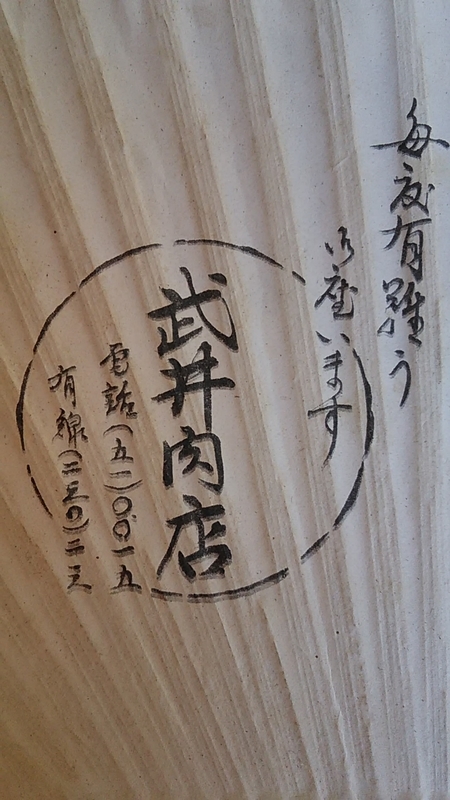 毎度有難う
御座います
武井肉店
電話(五二)〇〇一五
有線(二三〇)二三